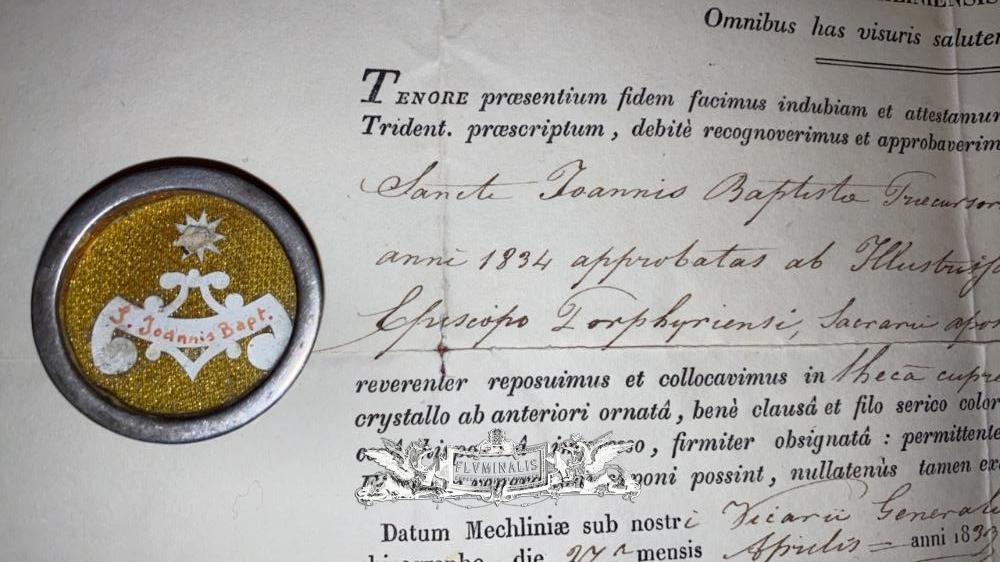 LINIENSIS
Omnibus has visuris saluten
TENORE præsentium fidem facimus indubiam et attestamur
Trident. præscriptum, debitè recognoverimus et approbaverim
Sancti Joannis Baptistæ Præcursor
anni 1834 approbatas ab Illustriss
Episcopo Porphyriensi, Sacrarii apos
reverenter reposuimus et collocavimus in theca cupre
crystallo ab anteriori ornatâ, benè clausâ et filo serico color
firmiter obsignatâ : permittente
poni possint, nullatenùs tamen ex
Datum Mechliniæ sub nostri Vicarii Generali
die 27 mensis Aprilis anni 183
S. Joannis Bapt.
FLVMINALIS